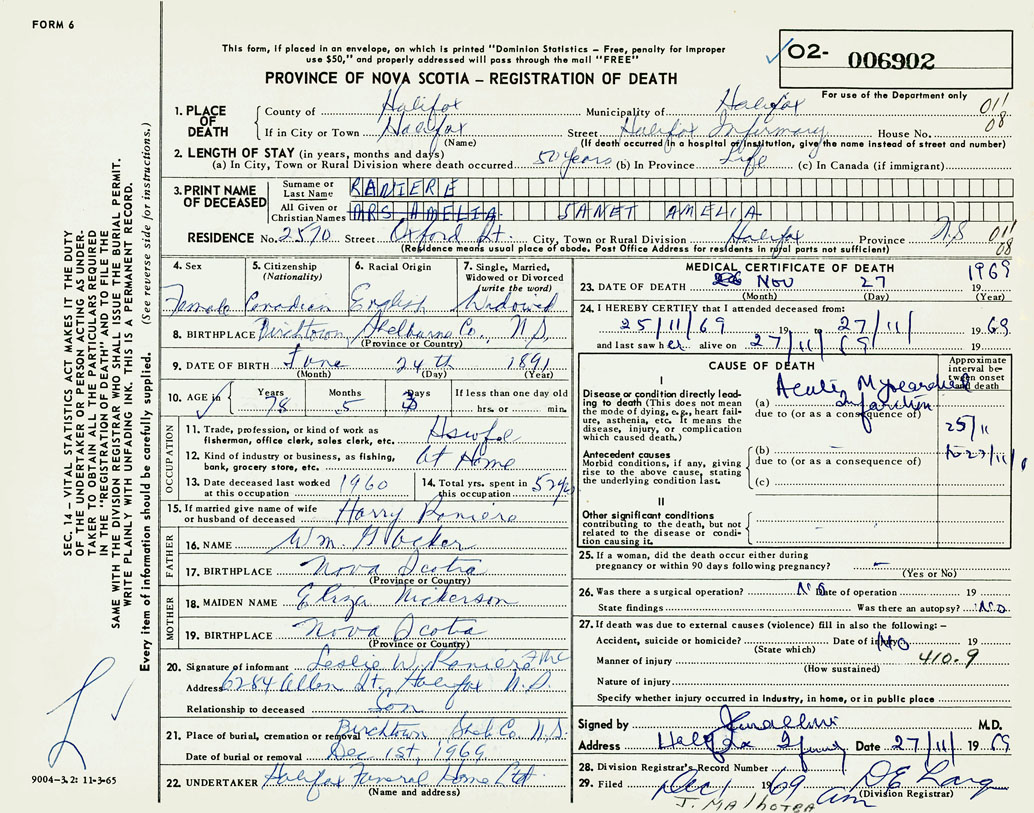 FORM 6
This form, if placed in an envelope, on which is printed "Dominion Statistics – Free, penalty for improper
use $50," and properly addressed will pass through the mail "FREE"
PROVINCE OF NOVA SCOTIA – REGISTRATION OF DEATH
✓ 02- 006902
For use of the Department only
1. PLACE OF DEATH
County of Halifax Municipality of Halifax 011
If in City or Town Halifax Street Halifax Infirmary House No. 08
(Name) (If death occurred in a hospital or institution, give the name instead of street and number)
2. LENGTH OF STAY (in years, months and days)
(a) In City, Town or Rural Division where death occurred 50 years (b) In Province Life (c) In Canada (if immigrant)
3. PRINT NAME OF DECEASED
Surname or Last Name RANIERE
All Given or Christian Names MRS. AMELIA JANET AMELIA
RESIDENCE No. 2570 Street Oxford St. City, Town or Rural Division Halifax Province N.S 011
(Residence means usual place of abode. Post Office Address for residents in rural parts not sufficient) 08
4. Sex Female
5. Citizenship (Nationality) Canadian
6. Racial Origin English
7. Single, Married, Widowed or Divorced (write the word) Widowed
8. BIRTHPLACE Birchtown, Shelburne Co., N.S.
(Province or Country)
9. DATE OF BIRTH June 24th 1891
(Month) (Day) (Year)
10. AGE in Years 78 Months 5 Days 3 If less than one day old hrs. or min.
OCCUPATION
11. Trade, profession, or kind of work as fisherman, office clerk, sales clerk, etc. Hswfe
12. Kind of industry or business, as fishing, bank, grocery store, etc. At Home
13. Date deceased last worked at this occupation 1960
14. Total yrs. spent in this occupation
15. If married give name of wife or husband of deceased Harry Raniere
FATHER
16. NAME Wm.
17. BIRTHPLACE Nova Scotia
(Province or Country)
MOTHER
18. MAIDEN NAME Eliza Nickerson
19. BIRTHPLACE Nova Scotia
(Province or Country)
20. Signature of informant Leslie W. Raniere
Address 6284 Allen St., Halifax N.S.
Relationship to deceased Son
21. Place of burial, cremation or removal Birchtown Shel Co. N.S.
Date of burial or removal Dec 1st, 1969
22. UNDERTAKER Halifax Funeral Home Ltd.
(Name and address)
MEDICAL CERTIFICATE OF DEATH
23. DATE OF DEATH Nov 27 19 1969
(Month) (Day) (Year)
24. I HEREBY CERTIFY that I attended deceased from:
25/11/69 19 to 27/11/ 1969
and last saw her alive on 27/11/69 19
CAUSE OF DEATH
Approximate interval between onset and death
I
Disease or condition directly leading to death (This does not mean the mode of dying, e.g., heart failure, asthenia, etc. It means the disease, injury, or complication which caused death.)
(a) Acute Myocardial Infarction
due to (or as a consequence of)
25/11
to 27/11/
Antecedent causes
Morbid conditions, if any, giving rise to the above cause, stating the underlying condition last.
(b) –
due to (or as a consequence of)
(c)
II
Other significant conditions
contributing to the death, but not related to the disease or condition causing it.
25. If a woman, did the death occur either during pregnancy or within 90 days following pregnancy? –
(Yes or No)
26. Was there a surgical operation? No Date of operation 19
State findings Was there an autopsy? No
27. If death was due to external causes (violence) fill in also the following:–
Accident, suicide or homicide? Date of injury No 19
(State which)
Manner of injury 410.9
(How sustained)
Nature of injury
Specify whether injury occurred in industry, in home, or in public place
Signed by M.D.
Address Halifax Date 27/11/ 1969
28. Division Registrar's Record Number
29. Filed Dec 1 1969 D E Lang
(Division Registrar)
J. MALHOTRA
SEC. 14 – VITAL STATISTICS ACT MAKES IT THE DUTY
OF THE UNDERTAKER OR PERSON ACTING AS UNDER-
TAKER TO OBTAIN ALL THE PARTICULARS REQUIRED
IN THE "REGISTRATION OF DEATH" AND TO FILE THE
SAME WITH THE DIVISION REGISTRAR WHO SHALL ISSUE THE BURIAL PERMIT.
WRITE PLAINLY WITH UNFADING INK. THIS IS A PERMANENT RECORD.
Every item of information should be carefully supplied. (See reverse side for instructions.)
9004–3.2: 11-3-65